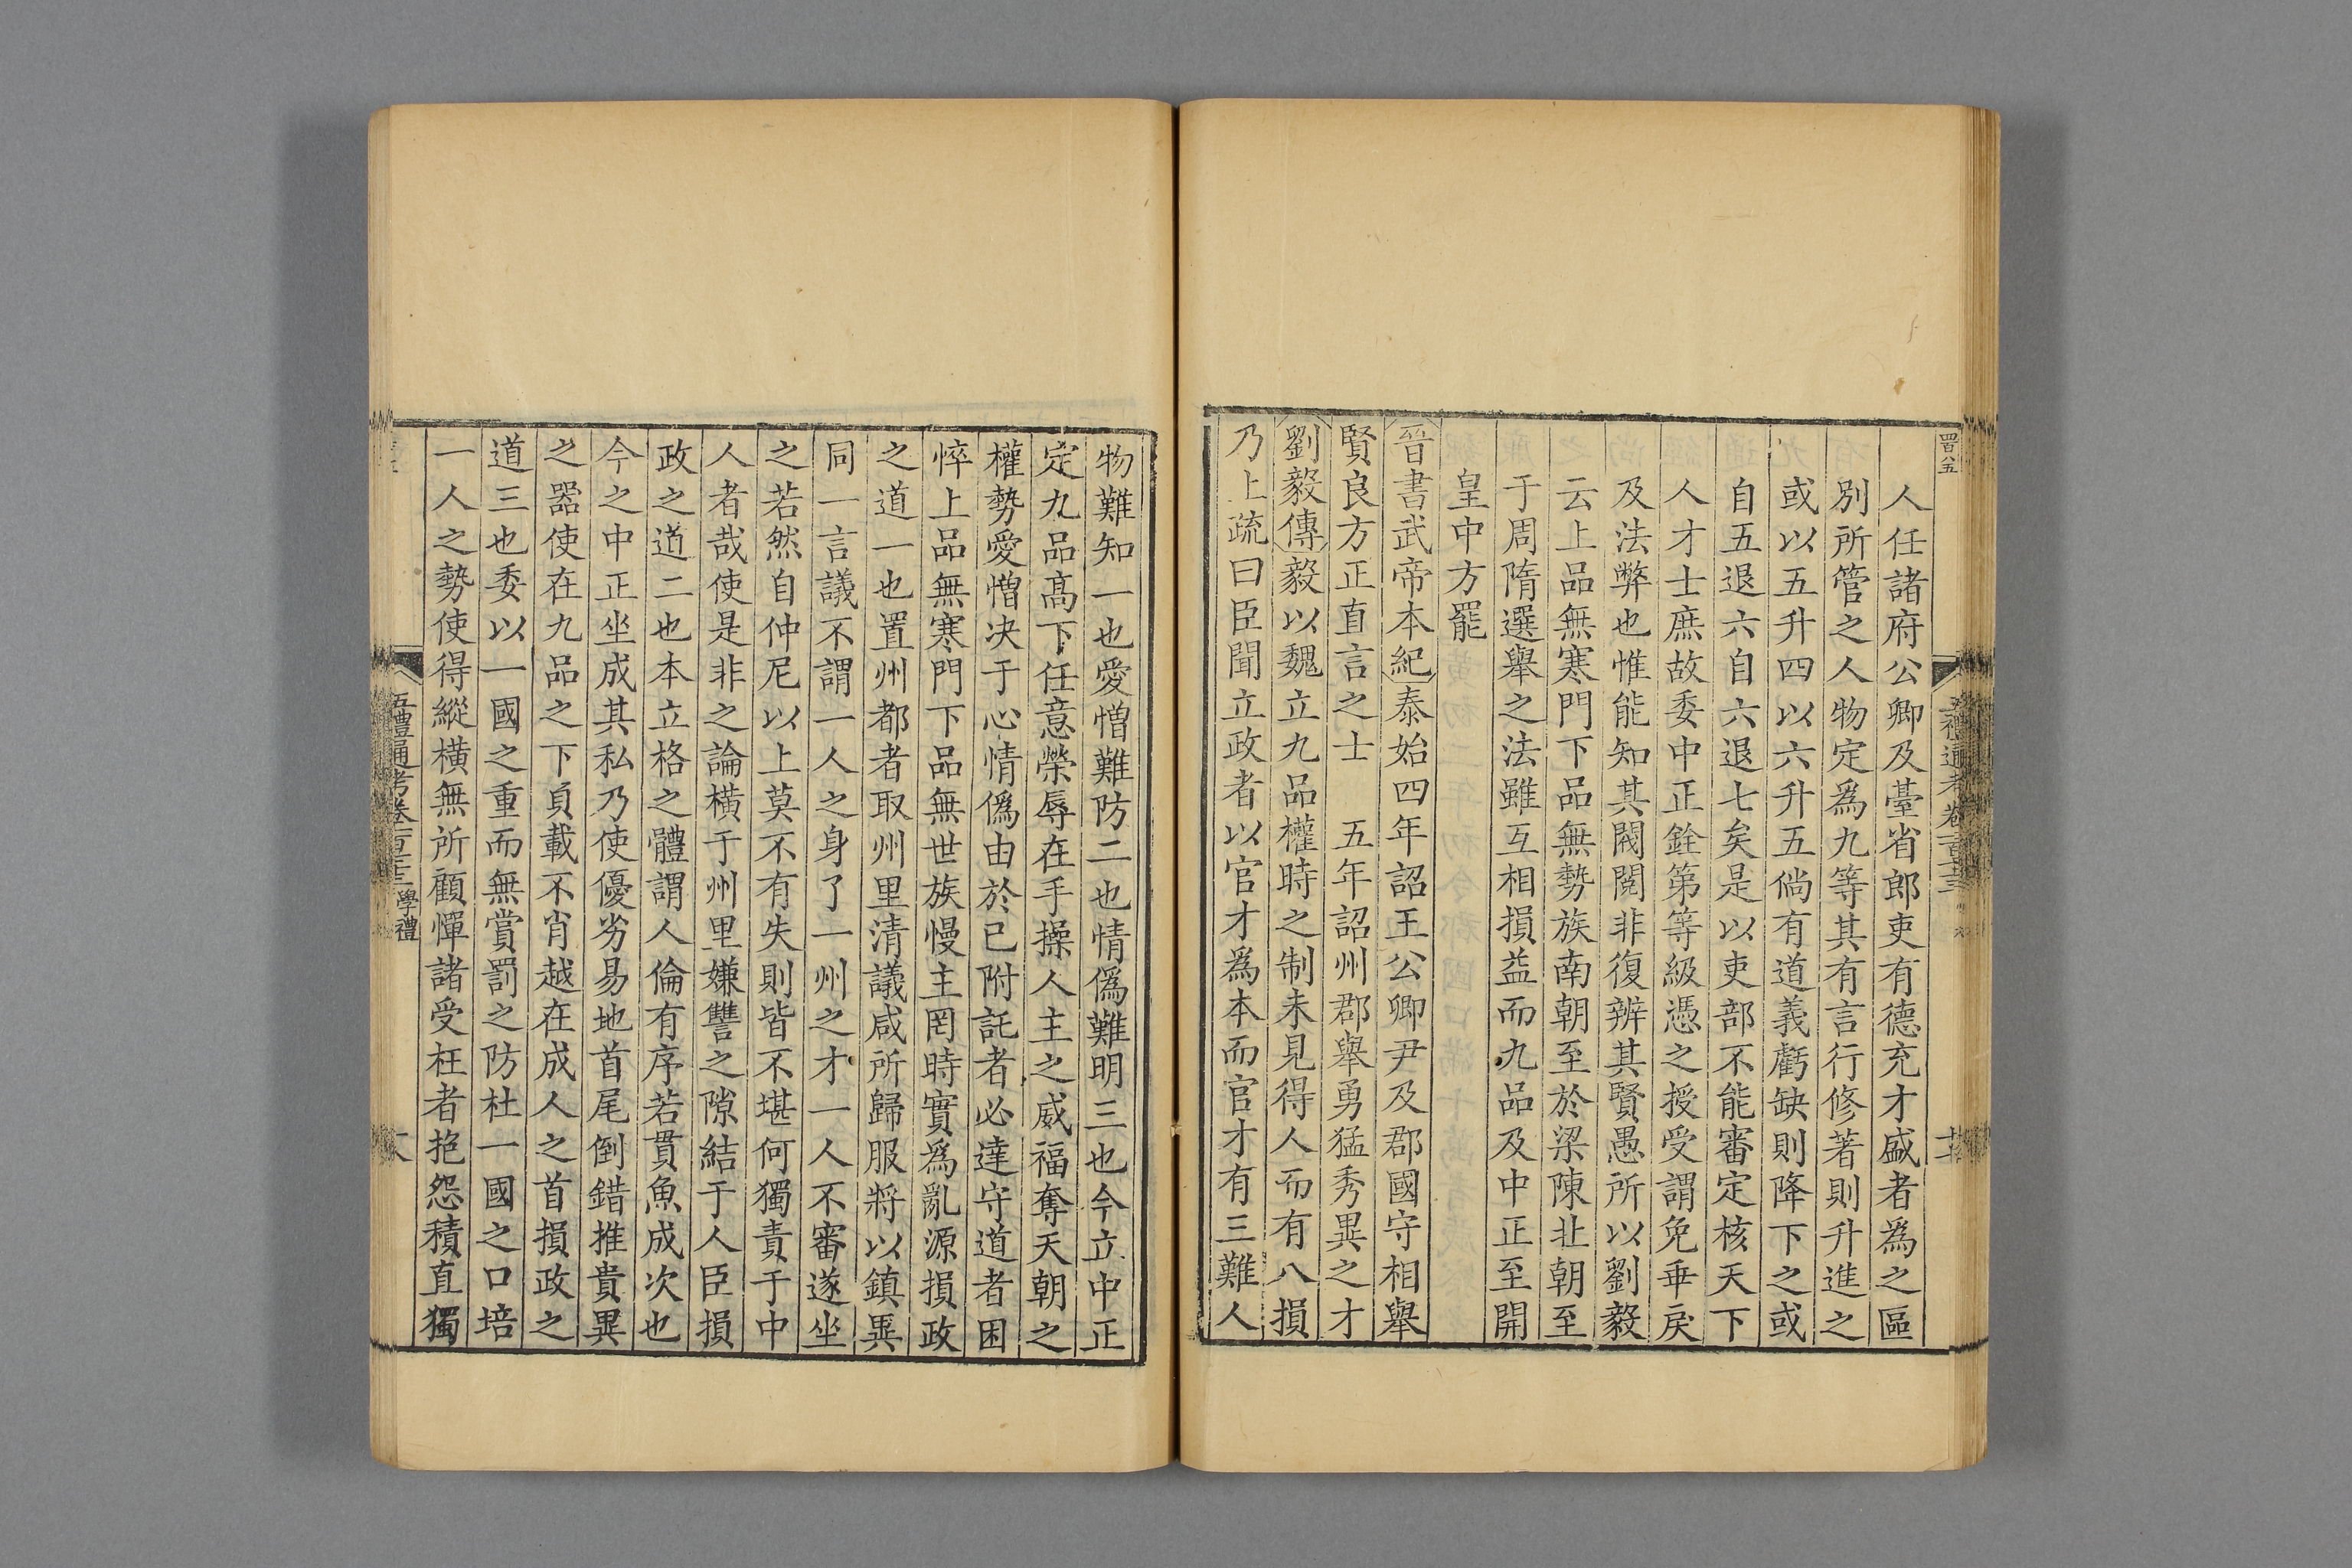 四百八五
人任諸府公卿及臺省郎吏有德充才盛者爲之區
別所管之人物定爲九等其有言行修著則升進之
或以五升四以六升五倘有道義虧缺則降下之或
自五退六自六退七矣是以吏部不能審定核天下
人才士庶故委中正銓第等級憑之授受謂免乖戾
及法弊也惟能知其閥閱非復辨其賢愚所以劉毅
云上品無寒門下品無勢族南朝至於梁陳北朝至
于周隋選舉之法雖互相損益而九品及中正至開
皇中方罷
晉書武帝本紀泰始四年詔王公卿尹及郡國守相舉
賢良方正直言之士 五年詔州郡舉勇猛秀異之才
劉毅傳毅以魏立九品權時之制未見得人而有八損
乃上疏曰臣聞立政者以官才爲本而官才有三難人
物難知一也愛憎難防二也情僞難明三也今立中正
定九品高下任意榮辱在手操人主之威福奪天朝之
權勢愛憎决于心情僞由於己附託者必達守道者困
悴上品無寒門下品無世族慢主罔時實爲亂源損政
之道一也置州都者取州里清議咸所歸服將以鎮異
同一言議不謂一人之身了一州之才一人不審遂坐
之若然自仲尼以上莫不有失則皆不堪何獨責于中
人者哉使是非之論橫于州里嫌讐之隙結于人臣損
政之道二也本立格之體謂人倫有序若貫魚成次也
今之中正坐成其私乃使優劣易地首尾倒錯推貴異
之器使在九品之下負載不肖越在成人之首損政之
道三也委以一國之重而無賞罰之防杜一國之口培
一人之勢使得縱橫無所顧憚諸受枉者抱怨積直獨
五禮通考卷 學禮